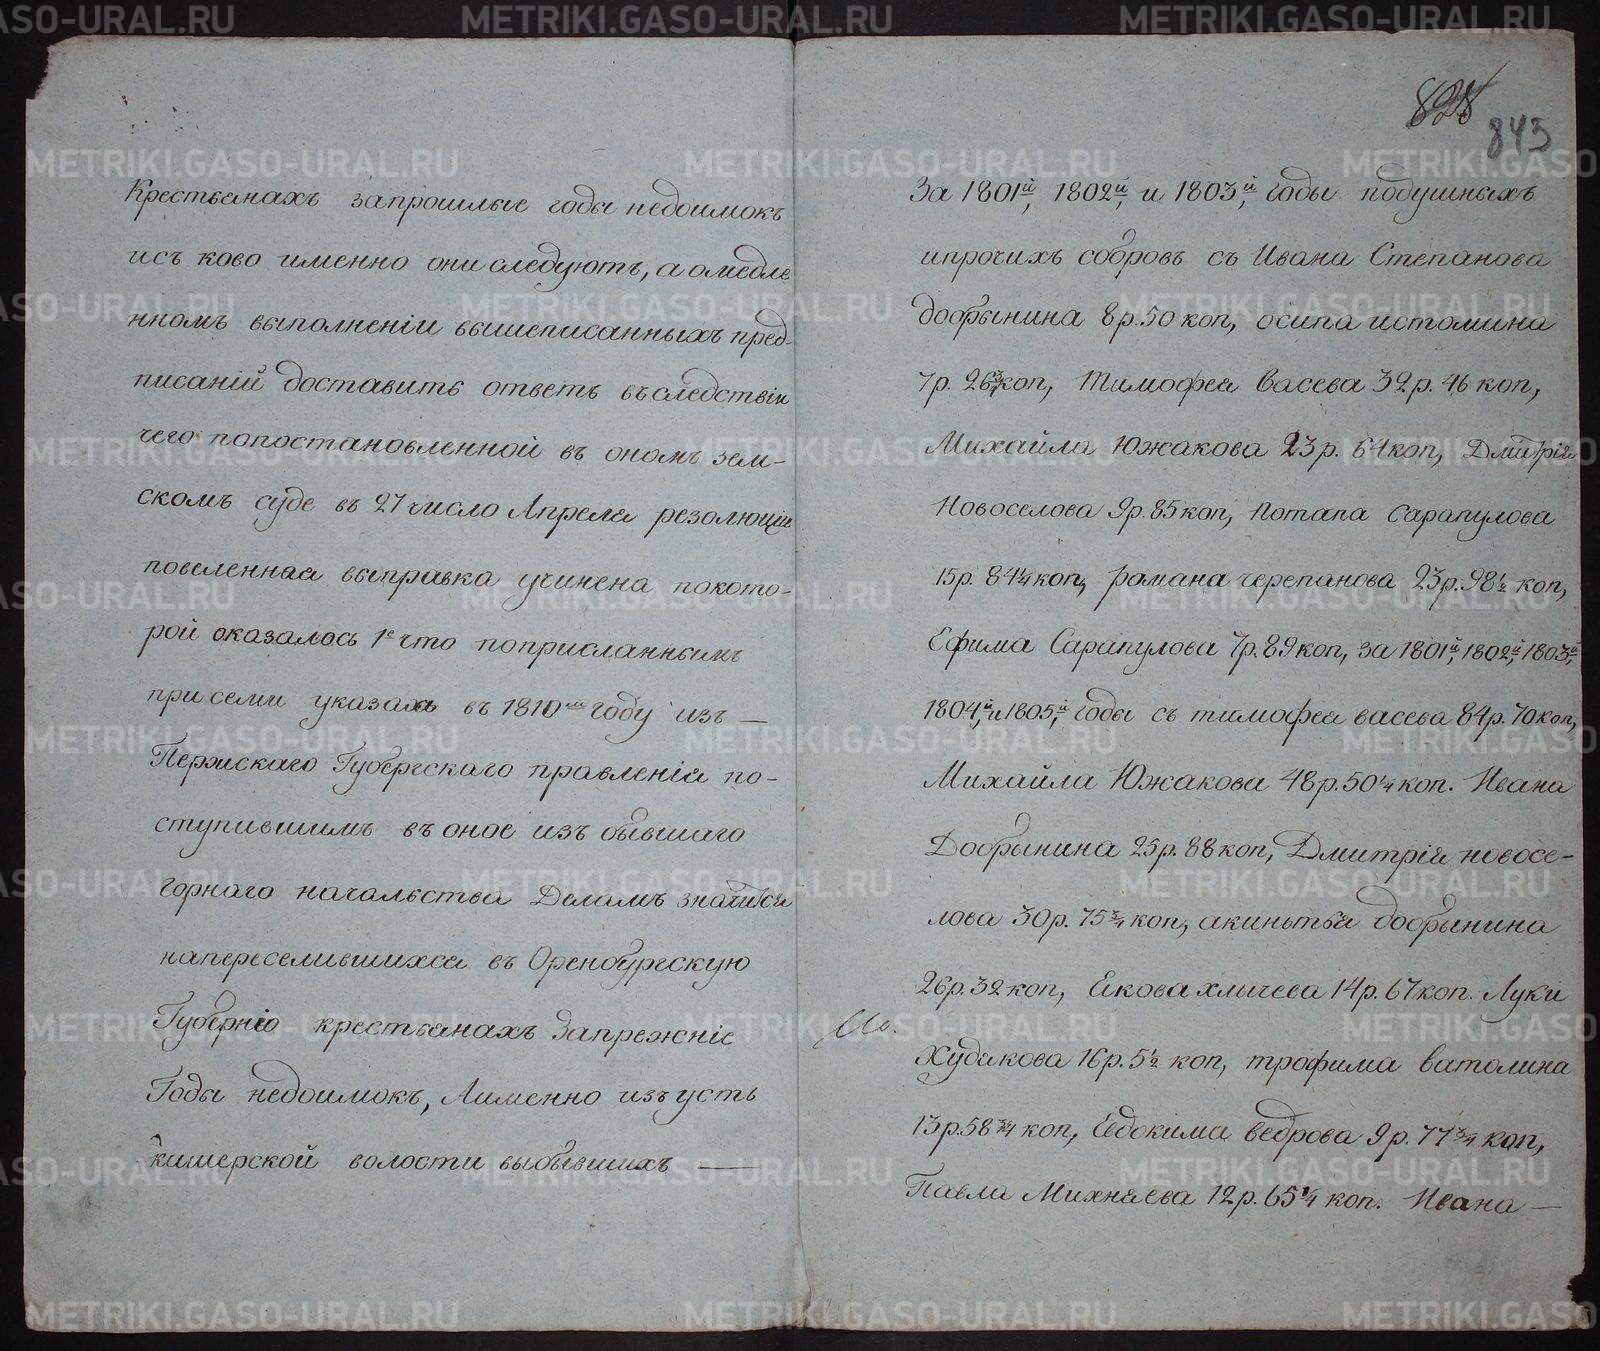 Крестьянахъ запрошлые годы недоимокъ
исъ ково именно они следуютъ, а омедле
нномъ выполненіи вышеписанныхъ пред-
писаній доставить ответъ въследствіи
чего попостановленной въ ономъ зем-
скомъ суде въ 27 число Апреля резолюціи
повеленная выправка учинена покото-
рой оказалось 1е что поприсланнымъ
при семи указахъ въ 1810мъ году изъ —
Пермскаго Губернскаго правленія по-
ступившимъ въ оное изъ бывшаго
горнаго начальства Деламъ значится
напереселившихся въ Оренбургскую
Губернію крестьянахъ Запрежніе
Годы недоимокъ, Аименно изъ усть
кишерской волости выбывшихъ —
828
843
За 1801й, 1802й, и 1803й, годы подушныхъ
ипрочихъ сборовъ съ Ивана Степанова
добрынина 8 р. 50 коп, осипа истомина
7 р. 26¾ коп, Тимофея Васева 32 р. 46 коп,
Михайла Южакова 23 р. 64 коп, Дмитрія
Новоселова 9 р. 85 коп, Потапа Сарапулова
15 р. 84¼ коп, романа черепанова 23 р. 98½ коп,
Ефима Сарапулова 7 р. 89 коп, за 1801й, 1802й, 1803й,
1804й, и 1805й, годы съ тимофея васева 84 р. 70 коп,
Михайла Южакова 48 р. 50¼ коп. Ивана
Добрынина 25 р. 88 коп, Дмитрія новосе-
лова 30 р. 75¾ коп, акинтья добрынина
26 р. 32 коп, Якова хлычева 14 р. 67 коп. Луки
Худякова 16 р. 5½ коп, трофима ватолина
13 р. 58¾ коп, Евдокима ведрова 9 р. 77¾ коп,
Павла Михняева 12 р. 65¼ коп. Ивана —
METRIKI.GASO-URAL.RU